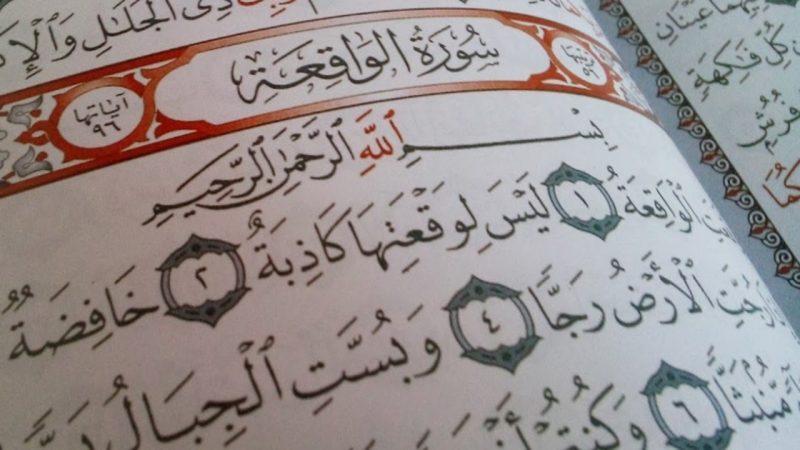 ذِى ٱلْجَلَـٰلِ وَٱلْإِكْ
سُورَةُ الوَاقِعَةِ
آيَاتُهَا ٩٦
بِسْمِ ٱللَّهِ ٱلرَّحْمَـٰنِ ٱلرَّحِيمِ
ٱلْوَاقِعَةُ ١ لَيْسَ لِوَقْعَتِهَا كَاذِبَةٌ ٢ خَافِضَةٌ
رُجَّتِ ٱلْأَرْضُ رَجًّا ٤ وَبُسَّتِ ٱلْجِبَالُ
مُّنۢبَثًّا ٦ وَكُنتُمْ
عَيْنَانِ
كُلِّ فَـٰكِهَةٍ
فُرُشٍ